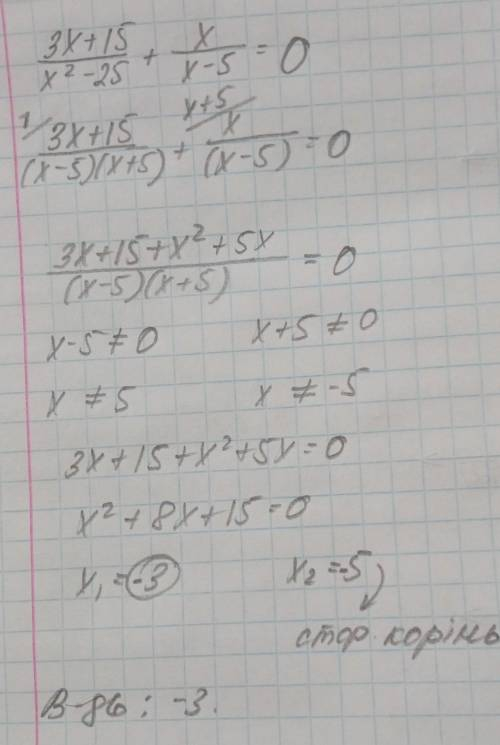 (3x+15)/(x²-25) + x/(x-5) = 0
1/ (3x+15)/((x-5)(x+5)) + x+5/ x/((x-5)) = 0
(3x+15+x²+5x)/((x-5)(x+5)) = 0
x-5≠0 x+5≠0
x≠5 x≠-5
3x+15+x²+5x=0
x²+8x+15=0
x₁=-3 x₂=-5
стор. корінь
В-дь: -3.